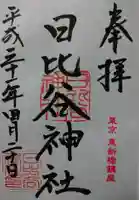 奉拝
東京 東新橋鎮座
日比谷神社
平成二十一年四月二十日